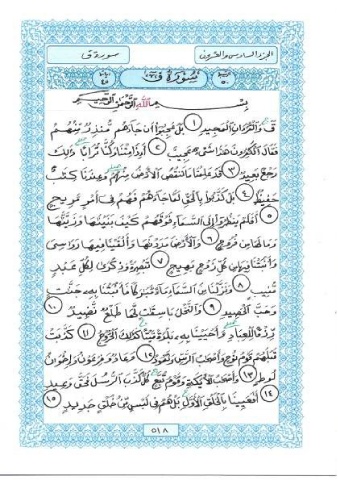 الجزء السادس والعشرون
سورة ق
سُورَةُ ق
بِسْمِ اللَّهِ الرَّحْمَٰنِ الرَّحِيمِ
قٓ وَالْقُرْءَانِ الْمَجِيدِ ١ بَلْ عَجِبُوا أَن جَاءَهُم مُّنذِرٌ مِّنْهُمْ
فَقَالَ الْكَٰفِرُونَ هَٰذَا شَيْءٌ عَجِيبٌ ٢ أَءِذَا مِتْنَا وَكُنَّا تُرَابًا ذَٰلِكَ
رَجْعٌ بَعِيدٌ ٣ قَدْ عَلِمْنَا مَا تَنقُصُ الْأَرْضُ مِنْهُمْ وَعِندَنَا كِتَٰبٌ
حَفِيظٌ ٤ بَلْ كَذَّبُوا بِالْحَقِّ لَمَّا جَاءَهُمْ فَهُمْ فِي أَمْرٍ مَّرِيجٍ
٥ أَفَلَمْ يَنظُرُوا إِلَى السَّمَاءِ فَوْقَهُمْ كَيْفَ بَنَيْنَٰهَا وَزَيَّنَّٰهَا
وَمَا لَهَا مِن فُرُوجٍ ٦ وَالْأَرْضَ مَدَدْنَٰهَا وَأَلْقَيْنَا فِيهَا رَوَٰسِيَ
وَأَنبَتْنَا فِيهَا مِن كُلِّ زَوْجٍ بَهِيجٍ ٧ تَبْصِرَةً وَذِكْرَىٰ لِكُلِّ عَبْدٍ
مُّنِيبٍ ٨ وَنَزَّلْنَا مِنَ السَّمَاءِ مَاءً مُّبَٰرَكًا فَأَنبَتْنَا بِهِ جَنَّٰتٍ
وَحَبَّ الْحَصِيدِ ٩ وَالنَّخْلَ بَاسِقَٰتٍ لَّهَا طَلْعٌ نَّضِيدٌ ١٠
رِّزْقًا لِّلْعِبَادِ وَأَحْيَيْنَا بِهِ بَلْدَةً مَّيْتًا كَذَٰلِكَ الْخُرُوجُ ١١ كَذَّبَتْ
قَبْلَهُمْ قَوْمُ نُوحٍ وَأَصْحَٰبُ الرَّسِّ وَثَمُودُ ١٢ وَعَادٌ وَفِرْعَوْنُ وَإِخْوَٰنُ
لُوطٍ ١٣ وَأَصْحَٰبُ الْأَيْكَةِ وَقَوْمُ تُبَّعٍ كُلٌّ كَذَّبَ الرُّسُلَ فَحَقَّ وَعِيدِ
١٤ أَفَعَيِينَا بِالْخَلْقِ الْأَوَّلِ بَلْ هُمْ فِي لَبْسٍ مِّنْ خَلْقٍ جَدِيدٍ ١٥
٥١٨